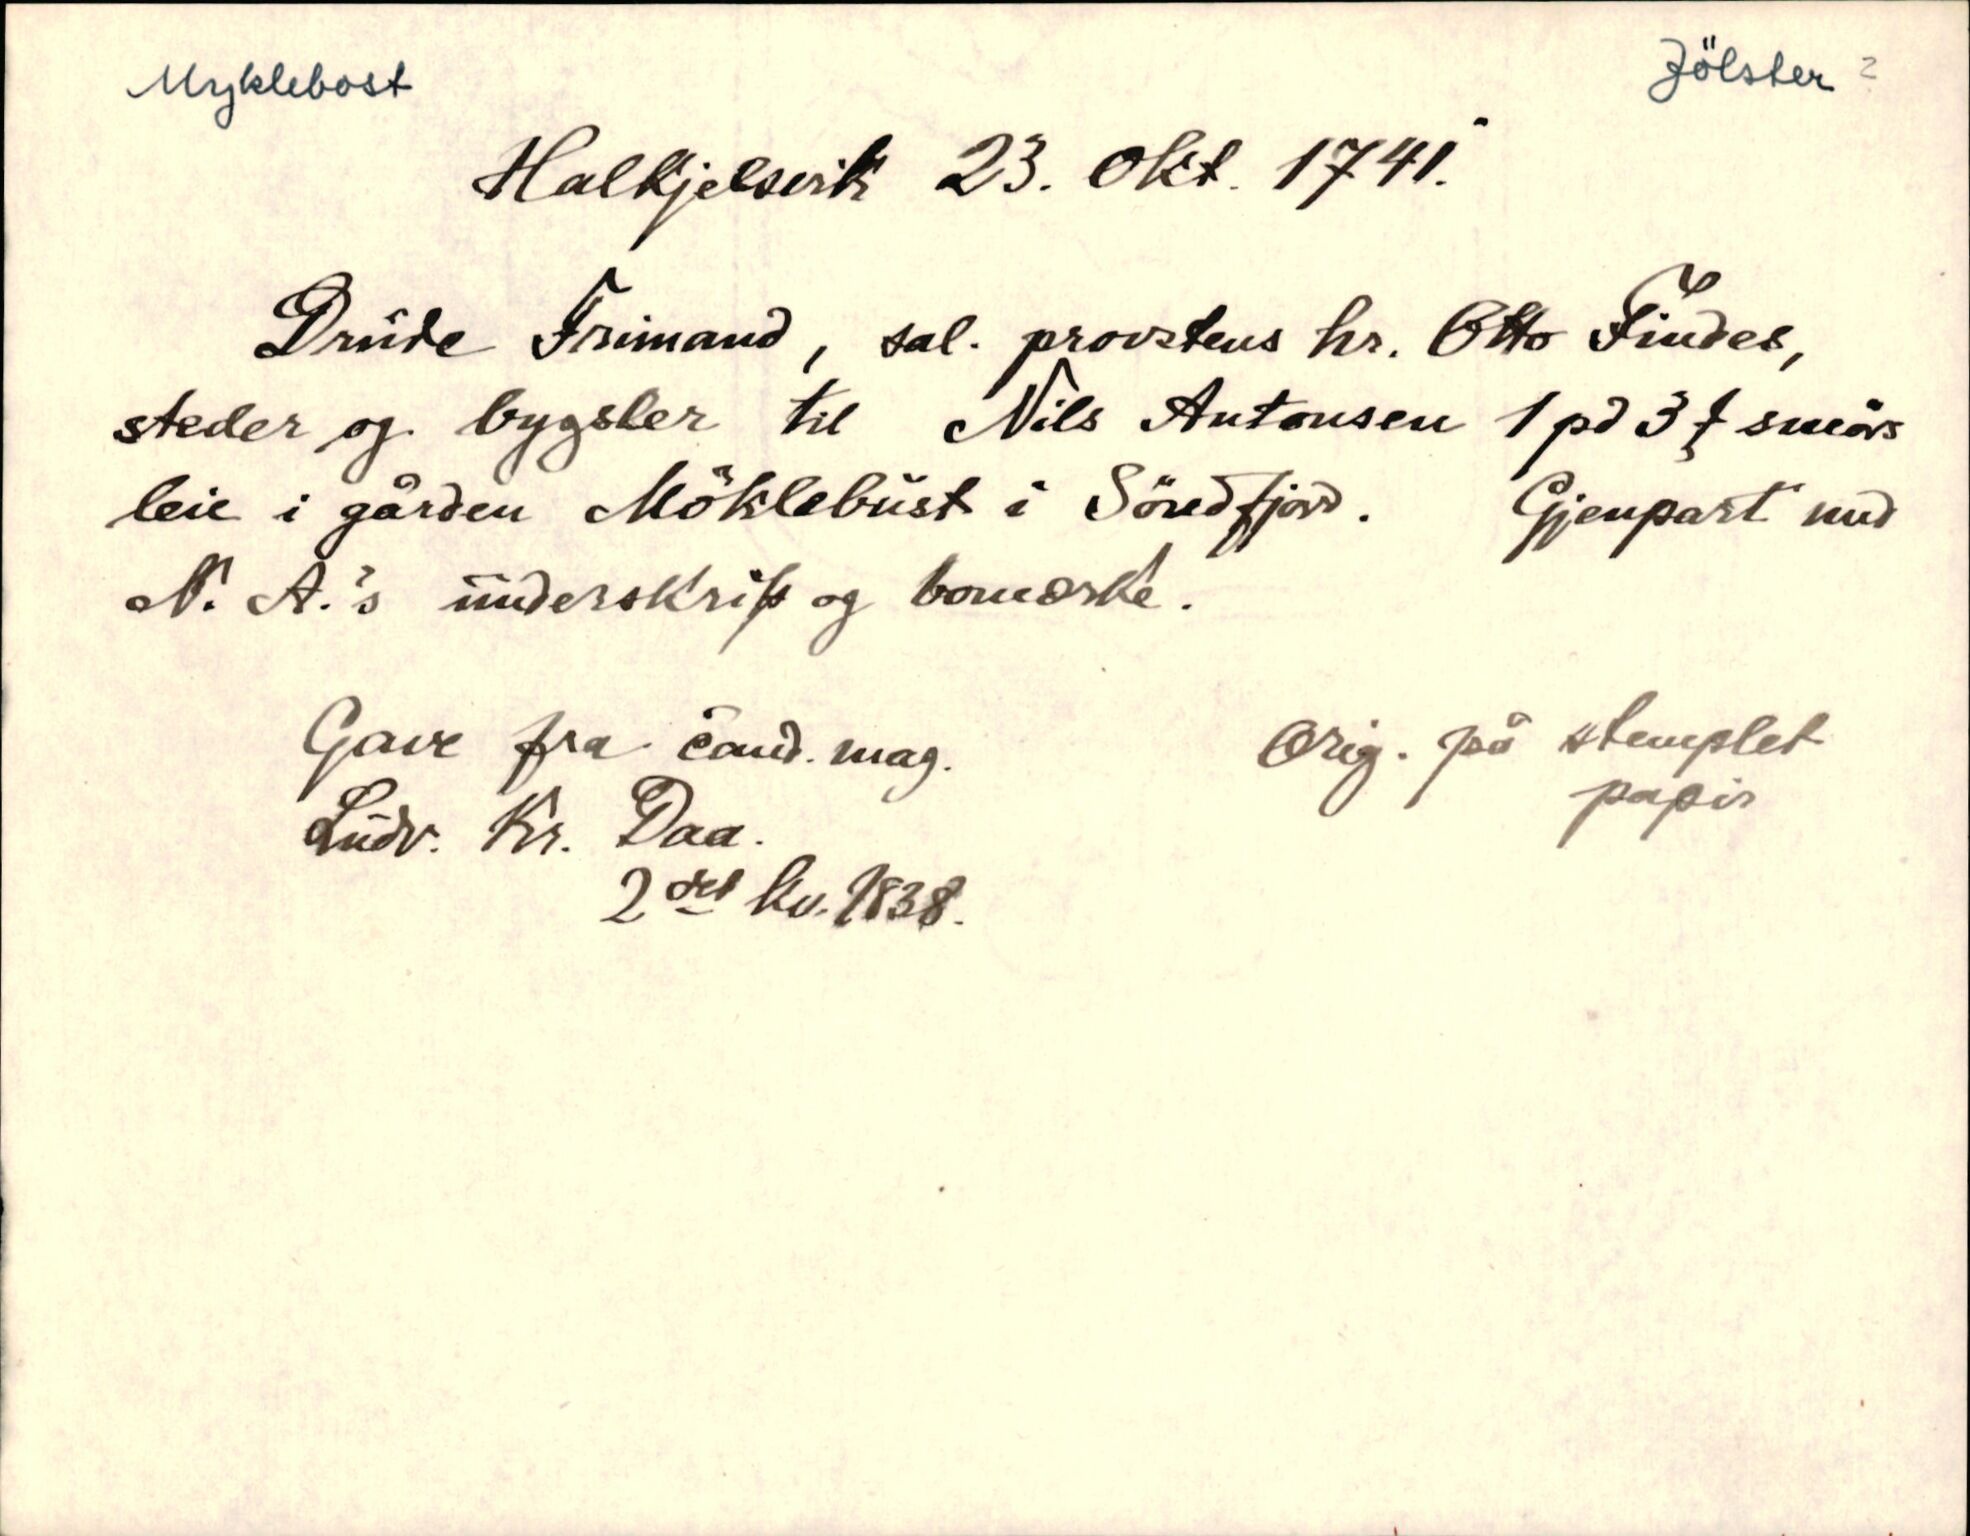 Myklebost Jölster ?
Halkjelsvik 23. Okt. 1741.
Drude Frimand, sal. provstens hr. Otto Findes,
steder og bygsler til Nils Antonsen 1 pd 3 ƚ smörs
leie i gården Möklebust i Söndfjord. Gjenpart med
N. A.'s underskrift og bomærke.
Gave fra cand. mag. Orig. på stemplet
Ludv. Kr. Daa. papir
2det kv. 1838.